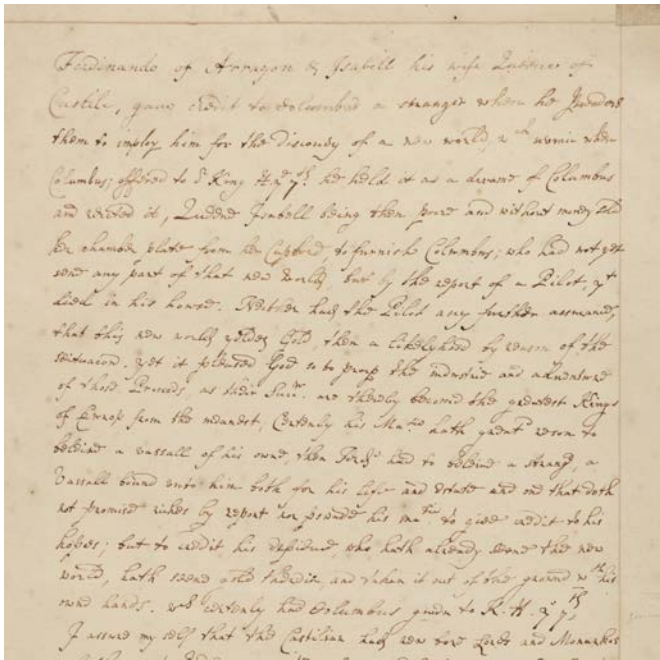 Ferdinando of Arragon & Isabell his wife Queene of
Castile, gaue credit to Columbus a stranger when he
them to imploy him for the discouery of a new world, wch when
Columbus offered to ye King H. ye 7th. he held it as a dreame of Columbus
and it, Queene Isabell being then poore and without money sold
her chamber plate from her Cupbord, to furnish Columbus; who had not yet
sene any part of that new world, but by the report of a Pilot, yt
died in his howse. Neither had the Pilot any further assurance,
that this new world yelded Gold, then a likelyhood by reason of the
scituacon. yet it pleased God so to prosp the industrie and aduenture
of those Princes, as their Succrs. are thereby become the greatest Kings
of Europ from the meanest, Certenly his Matie hath great reson to
beleiue a vassall of his owne, then Ferd: had to beleiue a strangr, a
Vassall bound vnto him both for his life and estate and one that doth
not promise riches by report nor pswade his matie to giue credit to his
hopes; but to credit his, who hath already seene the new
world, hath seene and taken it out of the ground wth his
own hands. wch certenly had Columbus giuen to K. H. ye 7th,
I assure my self that the Castilian had new bene Lords and Monarkes